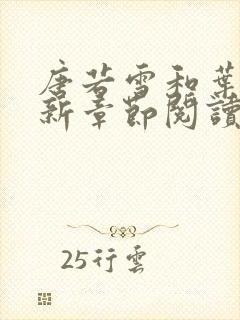 唐若雪和葉
新章節閱讀
25行雲